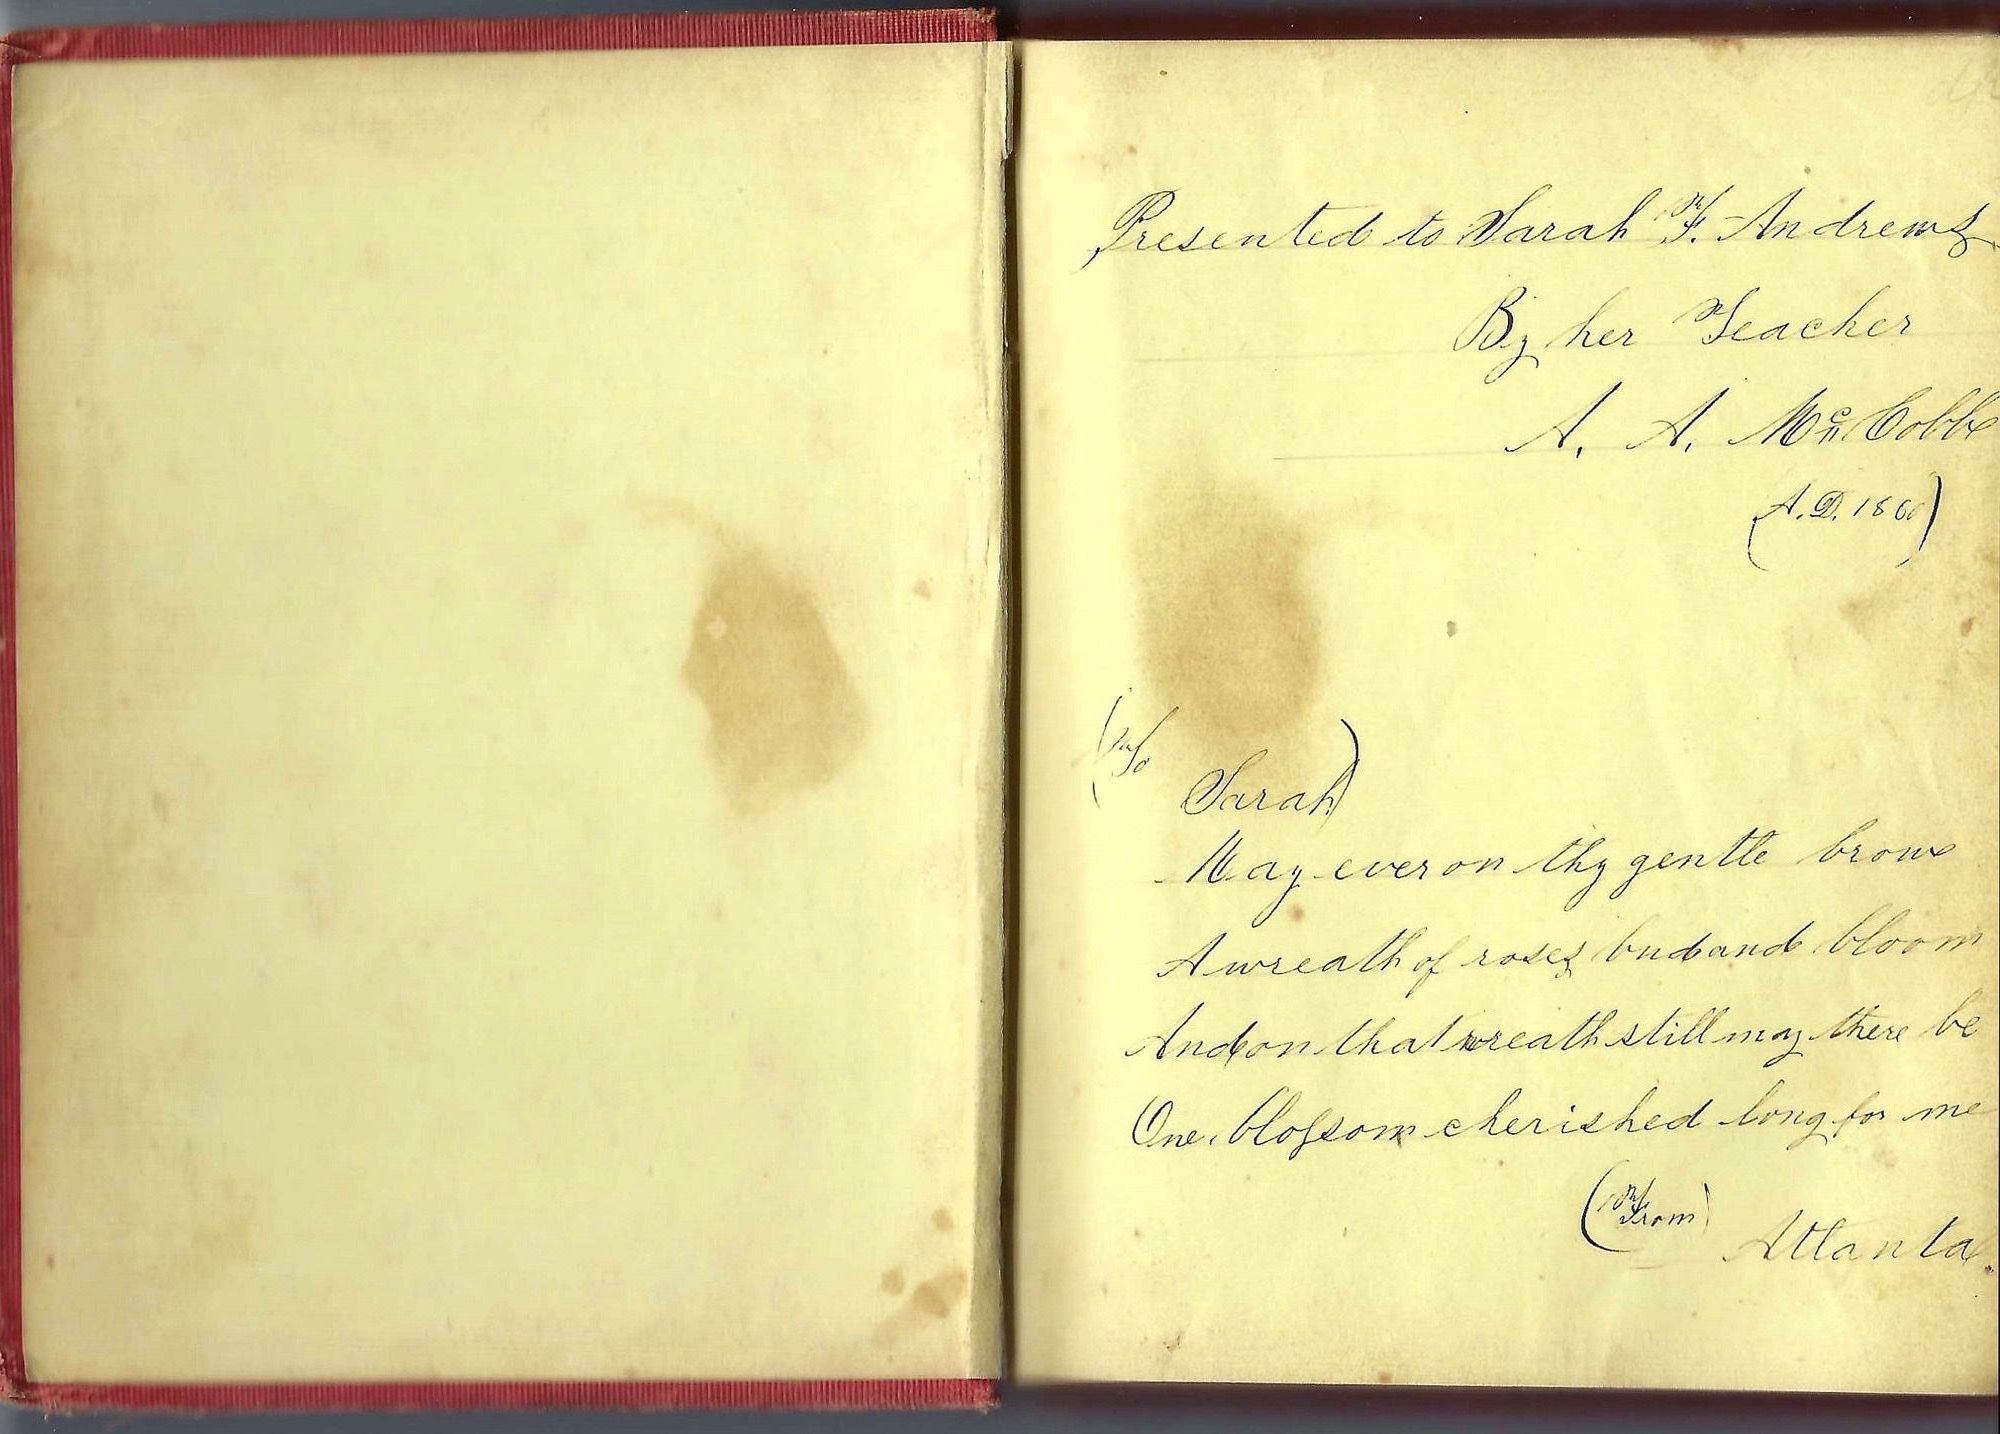 Presented to Sarah F. Andrews
By her Teacher
A. A. McCobb
(A.D. 1860)
(To
Sarah)
May ever on thy gentle brow
A wreath of roses bud and bloom
And on that wreath still may there be
One blossom cherished long for me
(From)
Atlanta.